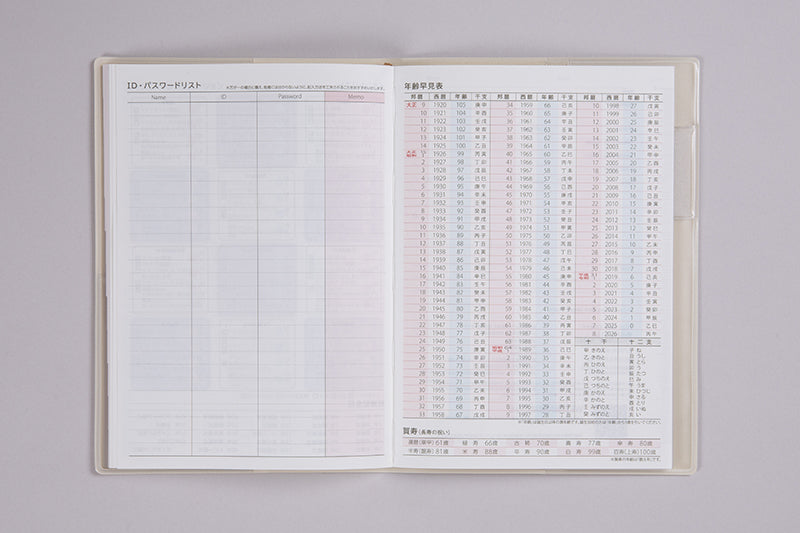 ID・パスワードリスト
Name ID Password Memo
年齢早見表
邦暦 西暦 年齢 干支 邦暦 西暦 年齢 干支 邦暦 西暦 年齢 干支
大正 9 1920 105 庚申 34 1959 66 己亥 10 1998 27 戊寅
10 1921 104 辛酉 35 1960 65 庚子 11 1999 26 己卯
11 1922 103 壬戌 36 1961 64 辛丑 12 2000 25 庚辰
12 1923 102 癸亥 37 1962 63 壬寅 13 2001 24 辛巳
13 1924 101 甲子 38 1963 62 癸卯 14 2002 23 壬午
14 1925 100 乙丑 39 1964 61 甲辰 15 2003 22 癸未
大正 15 昭和 1 1926 99 丙寅 40 1965 60 乙巳 16 2004 21 甲申
2 1927 98 丁卯 41 1966 59 丙午 17 2005 20 乙酉
3 1928 97 戊辰 42 1967 58 丁未 18 2006 19 丙戌
4 1929 96 己巳 43 1968 57 戊申 19 2007 18 丁亥
5 1930 95 庚午 44 1969 56 己酉 20 2008 17 戊子
6 1931 94 辛未 45 1970 55 庚戌 21 2009 16 己丑
7 1932 93 壬申 46 1971 54 辛亥 22 2010 15 庚寅
8 1933 92 癸酉 47 1972 53 壬子 23 2011 14 辛卯
9 1934 91 甲戌 48 1973 52 癸丑 24 2012 13 壬辰
10 1935 90 乙亥 49 1974 51 甲寅 25 2013 12 癸巳
11 1936 89 丙子 50 1975 50 乙卯 26 2014 11 甲午
12 1937 88 丁丑 51 1976 49 丙辰 27 2015 10 乙未
13 1938 87 戊寅 52 1977 48 丁巳 28 2016 9 丙申
14 1939 86 己卯 53 1978 47 戊午 29 2017 8 丁酉
15 1940 85 庚辰 54 1979 46 己未 30 2018 7 戊戌
16 1941 84 辛巳 55 1980 45 庚申 平成 31 令和 1 2019 6 己亥
17 1942 83 壬午 56 1981 44 辛酉 2 2020 5 庚子
18 1943 82 癸未 57 1982 43 壬戌 3 2021 4 辛丑
19 1944 81 甲申 58 1983 42 癸亥 4 2022 3 壬寅
20 1945 80 乙酉 59 1984 41 甲子 5 2023 2 癸卯
21 1946 79 丙戌 60 1985 40 乙丑 6 2024 1 甲辰
22 1947 78 丁亥 61 1986 39 丙寅 7 2025 0 乙巳
23 1948 77 戊子 62 1987 38 丁卯 8 2026 丙午
24 1949 76 己丑 63 1988 37 戊辰 十干 十二支
25 1950 75 庚寅 昭和 64 平成 1 1989 36 己巳 甲 きのえ 子 ね
26 1951 74 辛卯 2 1990 35 庚午 乙 きのと 丑 うし
27 1952 73 壬辰 3 1991 34 辛未 丙 ひのえ 寅 とら
28 1953 72 癸巳 4 1992 33 壬申 丁 ひのと 卯 う
29 1954 71 甲午 5 1993 32 癸酉 戊 つちのえ 辰 たつ
30 1955 70 乙未 6 1994 31 甲戌 己 つちのと 巳 み
31 1956 69 丙申 7 1995 30 乙亥 庚 かのえ 午 うま
32 1957 68 丁酉 8 1996 29 丙子 辛 かのと 未 ひつじ
33 1958 67 戊戌 9 1997 28 丁丑 壬 みずのえ 申 さる
癸 みずのと 酉 とり
戌 いぬ
亥 い
賀寿(長寿の祝い)
還暦(華甲)61歳 緑寿 66歳 古稀 70歳 喜寿 77歳 傘寿 80歳
半寿(盤寿)81歳 米寿 88歳 卒寿 90歳 白寿 99歳 百寿(上寿)100歳